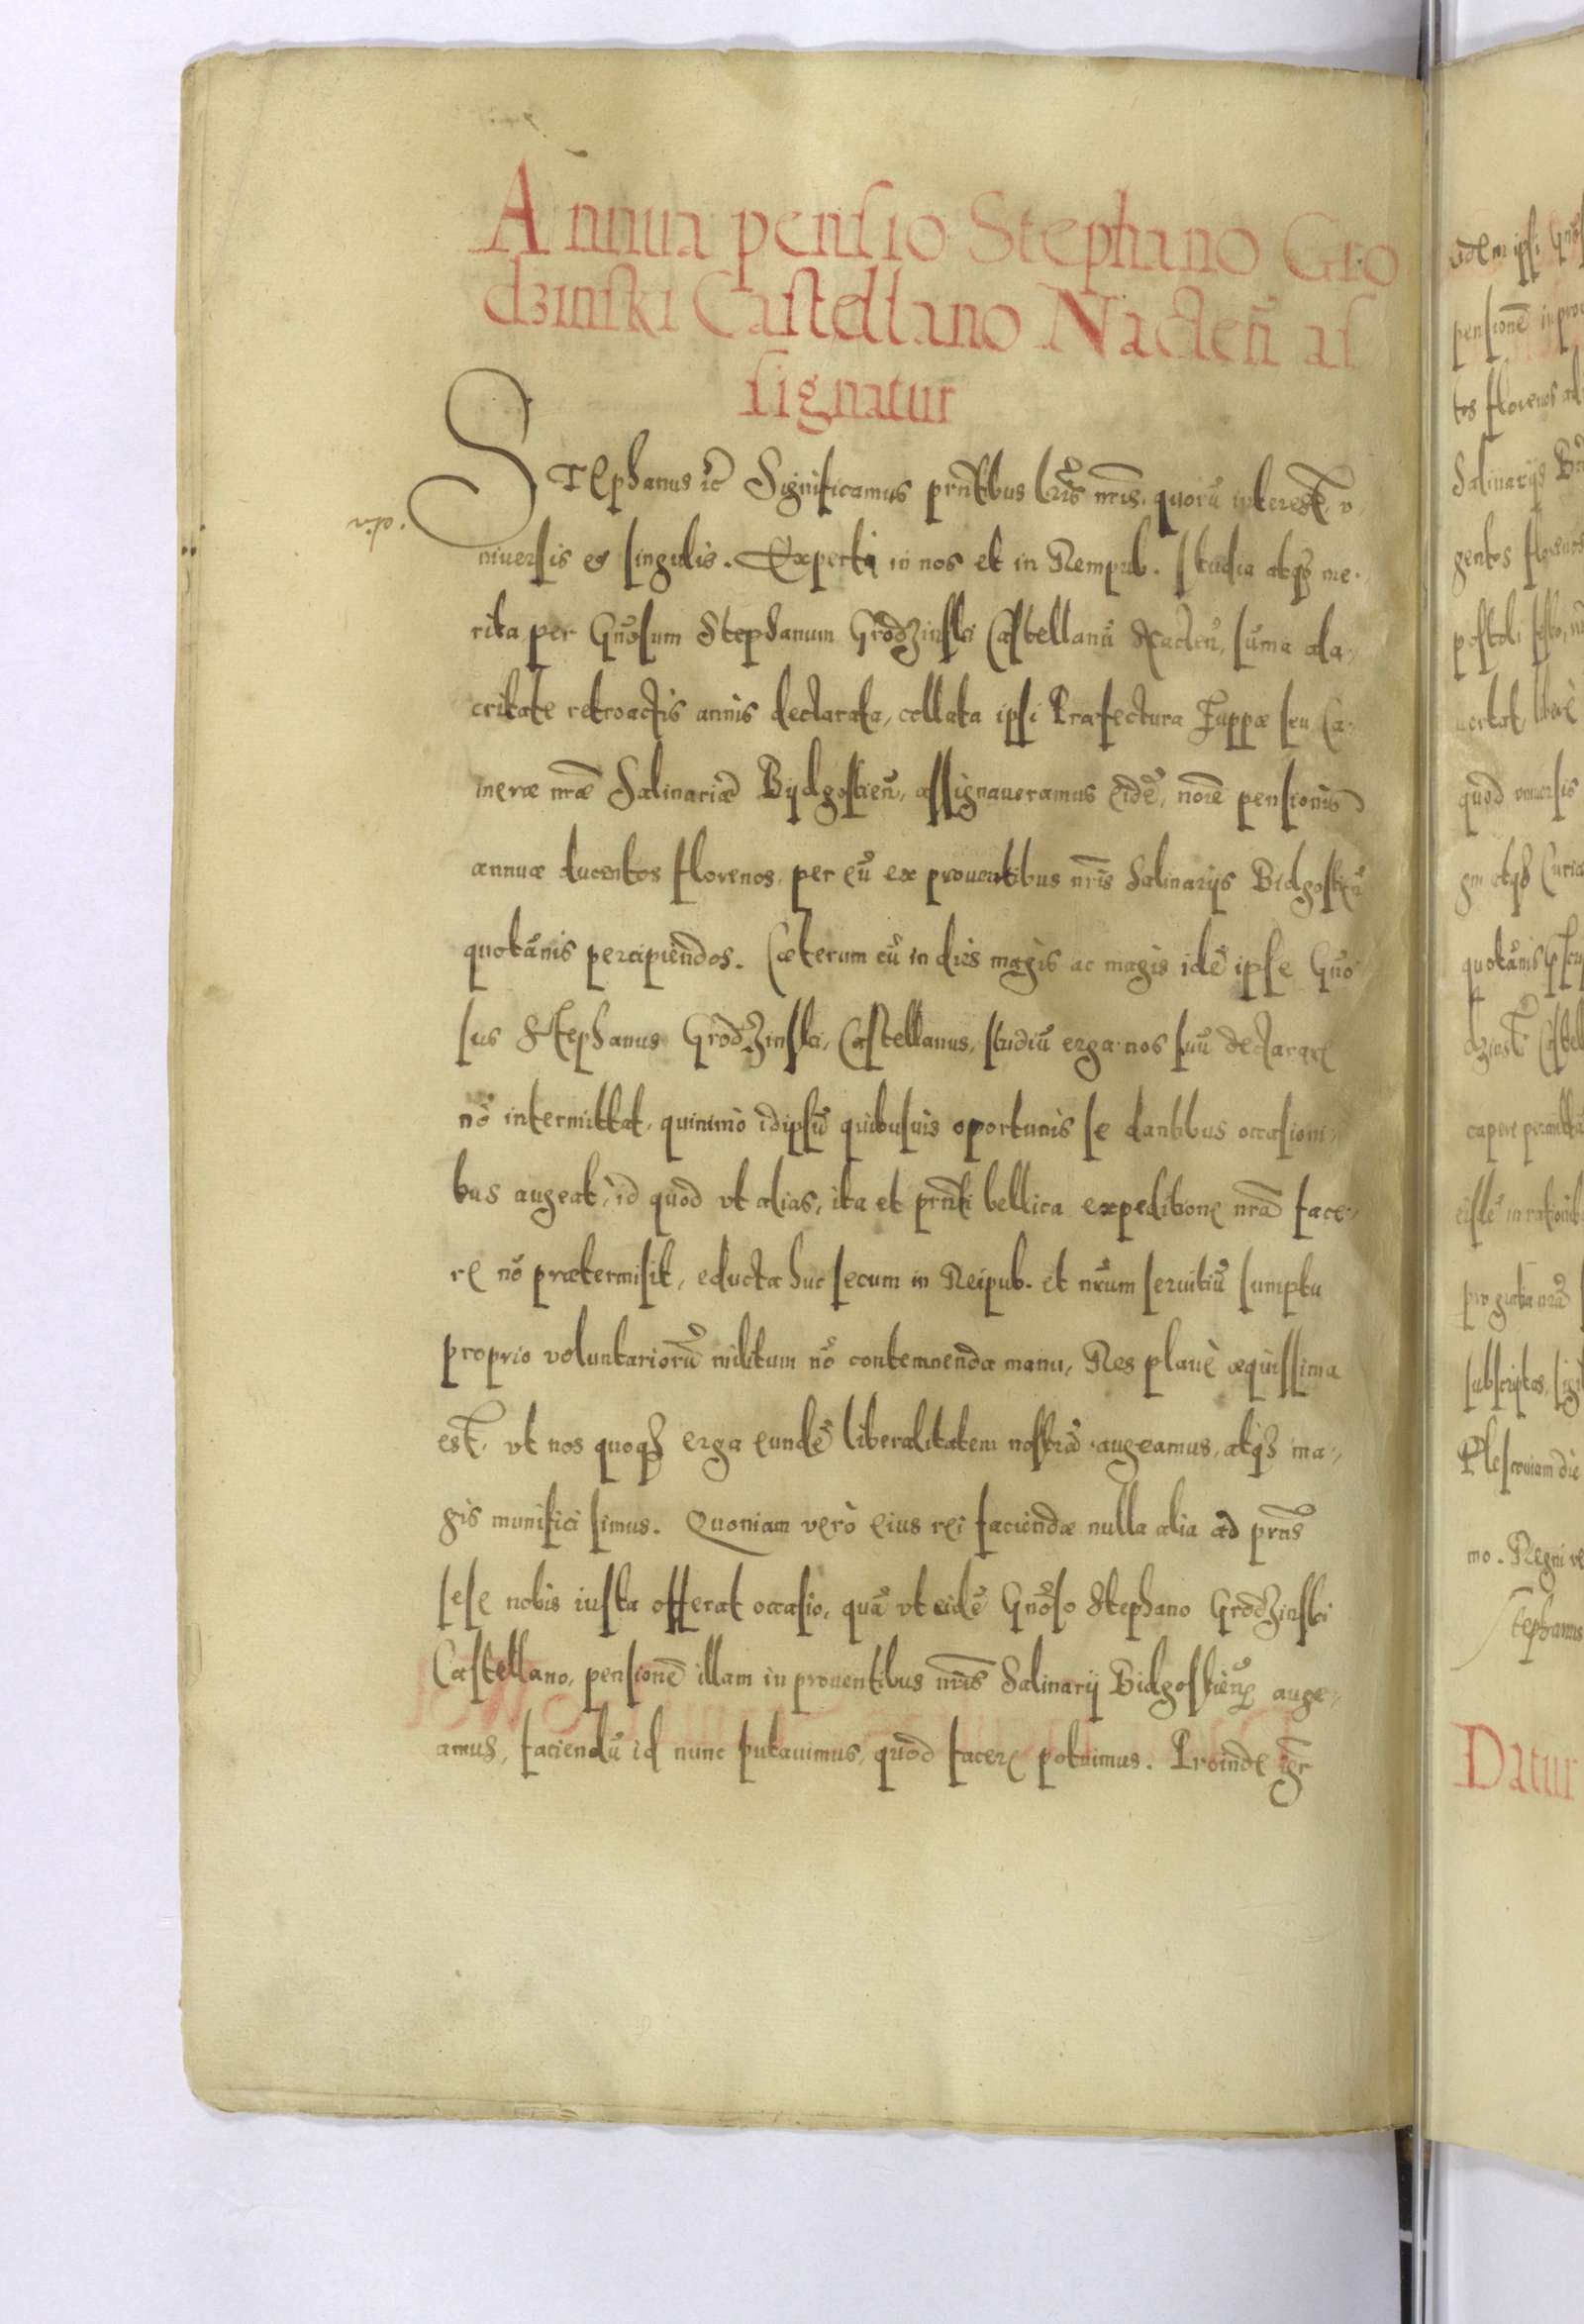 Annua pensio Stephano Gro
dzinski Castellano Nacleñ as
signatur
Stephanus etc̃ Significamus prñtibus lr̃is nr̃is, quorũ interest, v,
niuersis et singulis. Experti in nos et in Rempub. studia atq₃ me,
rita per Gñosum Stephanum Grodzinski Castellanũ Nacleñ, sũma ala,
critate retroactis annis declarata, collata ipsi Præfectura Zuppæ seu Ca,
meræ nr̃æ Salinariæ Bydgostieñ, assignaueramus eidẽ, noĩe pensionis
annuæ ducentos florenos, per eũ ex prouentibus nr̃is Salinarijs Bidgostieñ
quotãnis percipiendos. Cæterum cũ in dies magis ac magis idẽ ipse Gño
sus Stephanus Grodzinski, Castellanus, studiũ erga nos suũ declarare
nõ intermittat, quinimò idipsũ quibusuis oportunis se dantibus occasioni,
bus augeat, id quod vt alias, ita et prñti bellica expeditione nr̃a face,
re nõ prætermisit, educta huc secum in Reipub. et nr̃um seruitiũ sumptu
proprio voluntariorũ militum nõ contemnenda manu, Res planè æquissima
est, vt nos quoq₃ erga eundẽ liberalitatem nostrã augeamus, atq₃ ma,
gis munifici simus. Quoniam verò eius rei faciendæ nulla alia ad præ̃ns
sese nobis iusta offerat occasio, quã vt eidẽ Gñoso Stephano Grodzinski
Castellano, pensionẽ illam in prouentibus nr̃is Salinarij Bidgostieñ auge,
amus, faciendũ id nunc putauimus, quod facere potuimus. Proinde igr̃
pensionẽ
tos florenos
Salinarijs
gentos florenos
quod vniuersis
quotãnis
pro grata nr̃a
mo. Regni
Stephanus
Datur